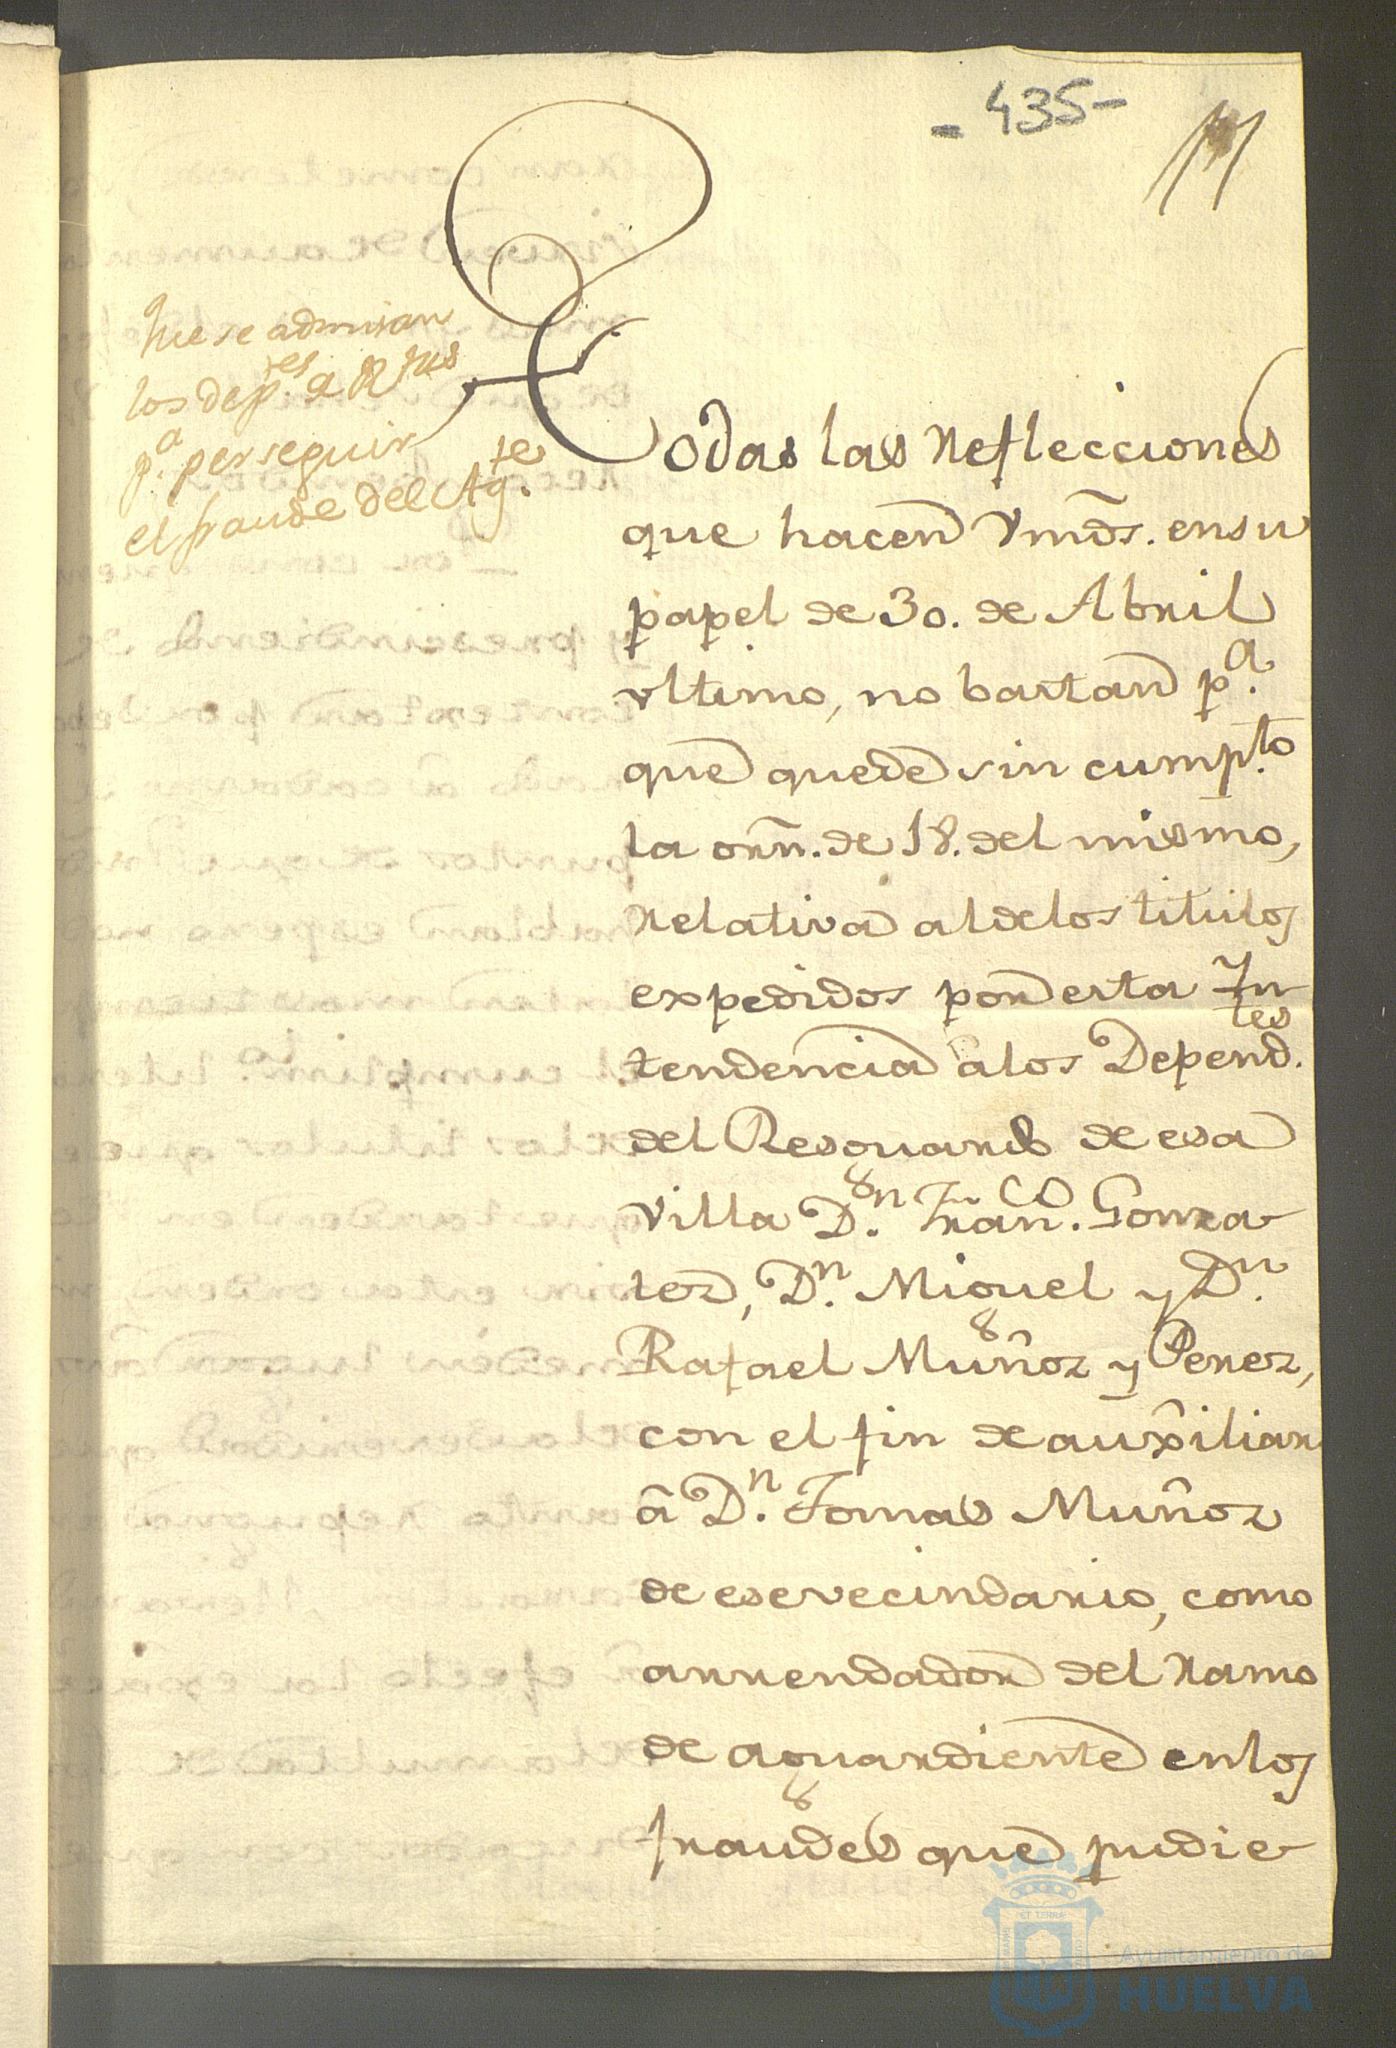 - 435 -
Que se admitan
los dep.es de Rtas
p.a perseguir
el fraude del Ag.te
Todas las Reflecciones
que hacen Vmds. en su
papel de 30. de Abril
ultimo, no bastan p.a
que quede sin cumpl.to
la orn. de 18. del mismo,
relativa al de los titulos
expedidos por esta In
tendencia a los Depend.tes
del Resguardo de esa
Villa D.n Fran.co Gonza
lez, D.n Miguel y D.n
Rafael Muñoz y Perez,
con el fin de auxîliar
â D.n Tomas Muñoz
de ese vecindario, como
arrendador del ramo
de aguardiente en los
fraudes que pudie
Ayuntamiento de
HUELVA